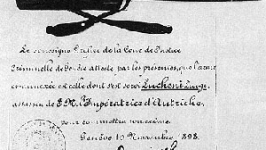 Le soussigné Greffier de la Cour de Justice
Criminelle de Genève atteste par les présentes, que l'arme
ci-annexée est celle dont s'est servi Lucheni Luigi,
assassin de S. M. l'Impératrice d'Autriche.
pour commettre son crime.
Genève 10 Novembre 1898.